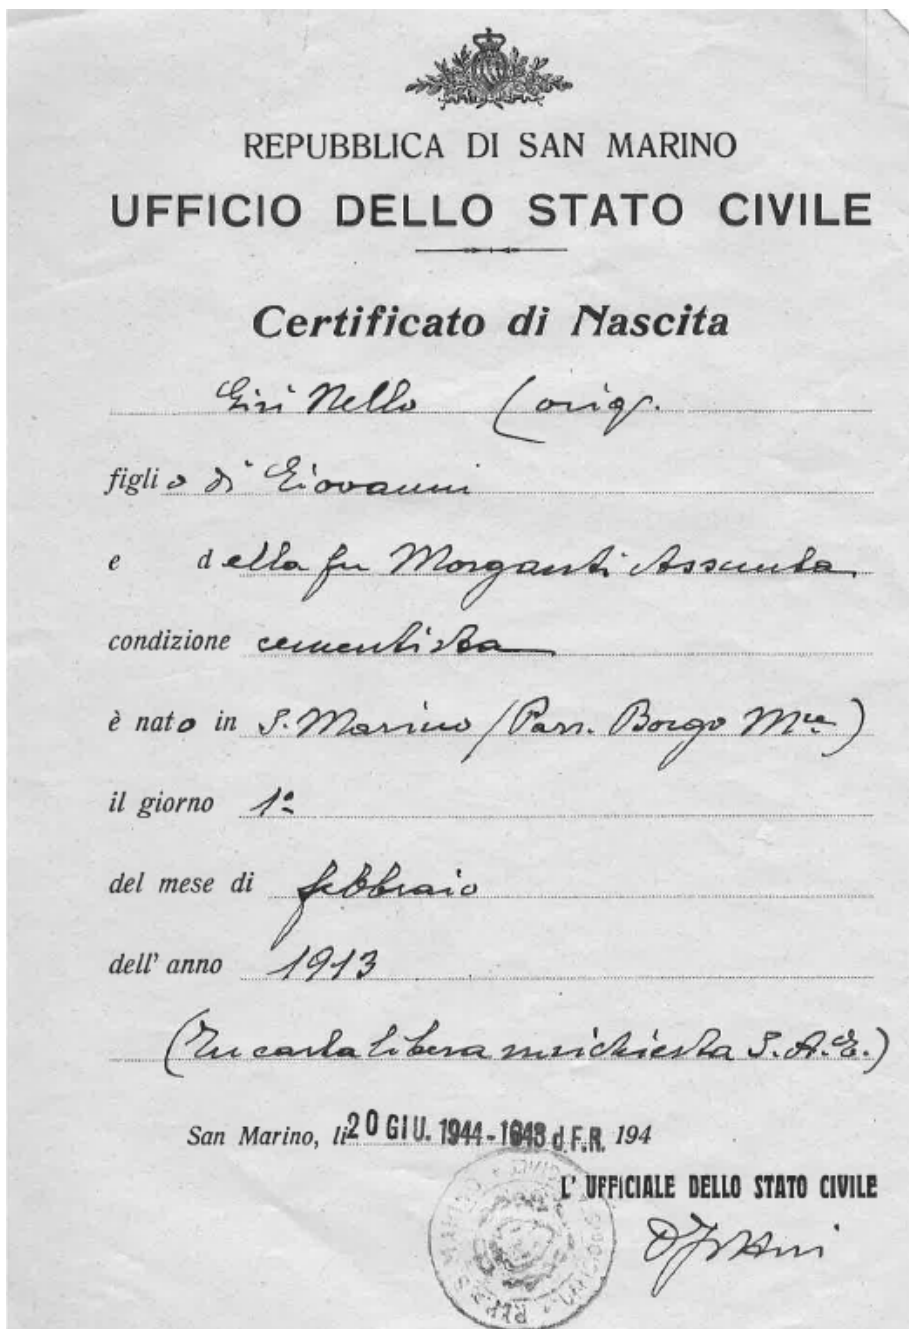 REPUBBLICA DI SAN MARINO
UFFICIO DELLO STATO CIVILE
Certificato di Nascita
Nello (orig.
figlio di Giovanni
e della fu Morganti Assunta
condizione cementista
è nato in S. Marino (Parr. Borgo Mre)
il giorno 1º
del mese di febbraio
dell' anno 1913
(In carta libera su richiesta S.A.E.)
San Marino, li 20 GIU. 1944 - 1643 d.F.R. 194
L' UFFICIALE DELLO STATO CIVILE